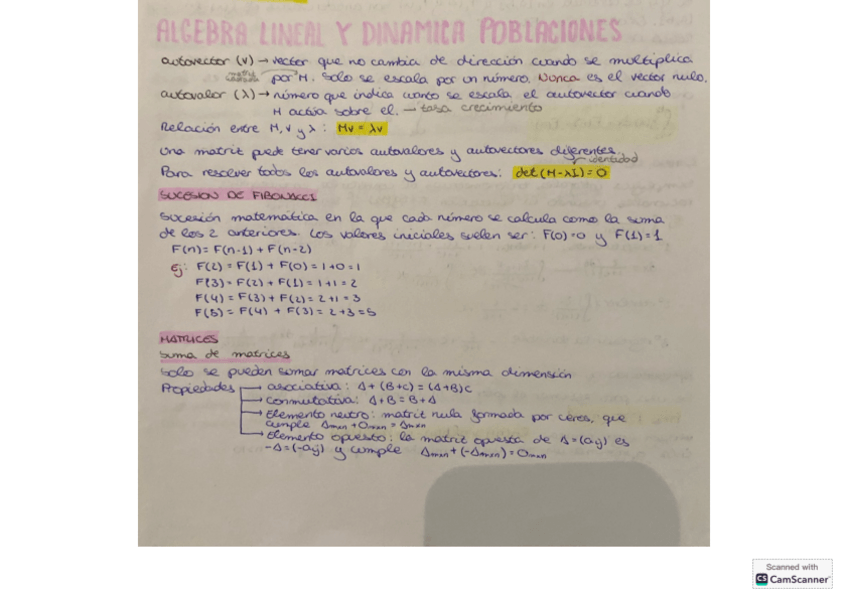 ALGEBRA LINEAL Y DINAMICA POBLACIONES
autovector (v) → vector que no cambia de dirección cuando se multiplica
por M. Solo se escala por un número. Nunca es el vector nulo.
autovalor (λ) → número que indica cuanto se escala el autovector cuando
M actúa sobre el. → tasa crecimiento
Relación entre M, v y λ : Mv = λv
Una matriz puede tener varios autovalores y autovectores diferentes.
identidad
Para resolver todos los autovalores y autovectores: det (M-λI) = 0
SUCESION DE FIBONACCI
Sucesión matemática en la que cada número se calcula como la suma
de los 2 anteriores. Los valores iniciales suelen ser: F(0)=0 y F(1)=1
F(n) = F(n-1) + F(n-2)
ej: F(2) = F(1) + F(0) = 1+0 = 1
F(3) = F(2) + F(1) = 1+1 = 2
F(4) = F(3) + F(2) = 2+1 = 3
F(5) = F(4) + F(3) = 2+3 = 5
MATRICES
Suma de matrices
Solo se pueden sumar matrices con la misma dimensión
Propiedades → asociativa: A+ (B+C) = (A+B)C
→ conmutativa: A+B = B+A
→ Elemento neutro: matriz nula formada por ceros, que
cumple Amxn + Omxn = Amxn
→ Elemento opuesto: la matriz opuesta de A=(aij) es
-A=(-aij) y cumple Amxn + (-Amxn) = Omxn
Scanned with
CS CamScanner